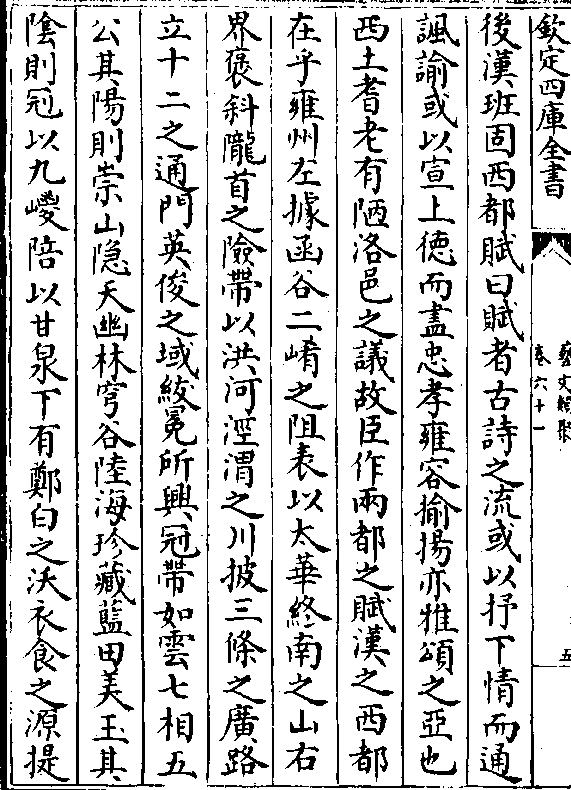 欽定四庫全書
藝文類聚
卷六十一
五
後漢班固西都賦曰賦者古詩之流或以抒下情而通
諷諭或以宣上德而盡忠孝雍容揄揚亦雅頌之亞也
西土耆老有陋洛邑之議故臣作兩都之賦漢之西都
在乎雍州左據函谷二崤之阻表以太華終南之山右
界褒斜隴首之險帶以洪河涇渭之川披三條之廣路
立十二之通門英俊之域紱冕所興冠帶如雲七相五
公其陽則崇山隐天幽林穹谷陸海珍藏藍田美玉其
陰則冠以九嵕陪以甘泉下有鄭白之沃衣食之源提